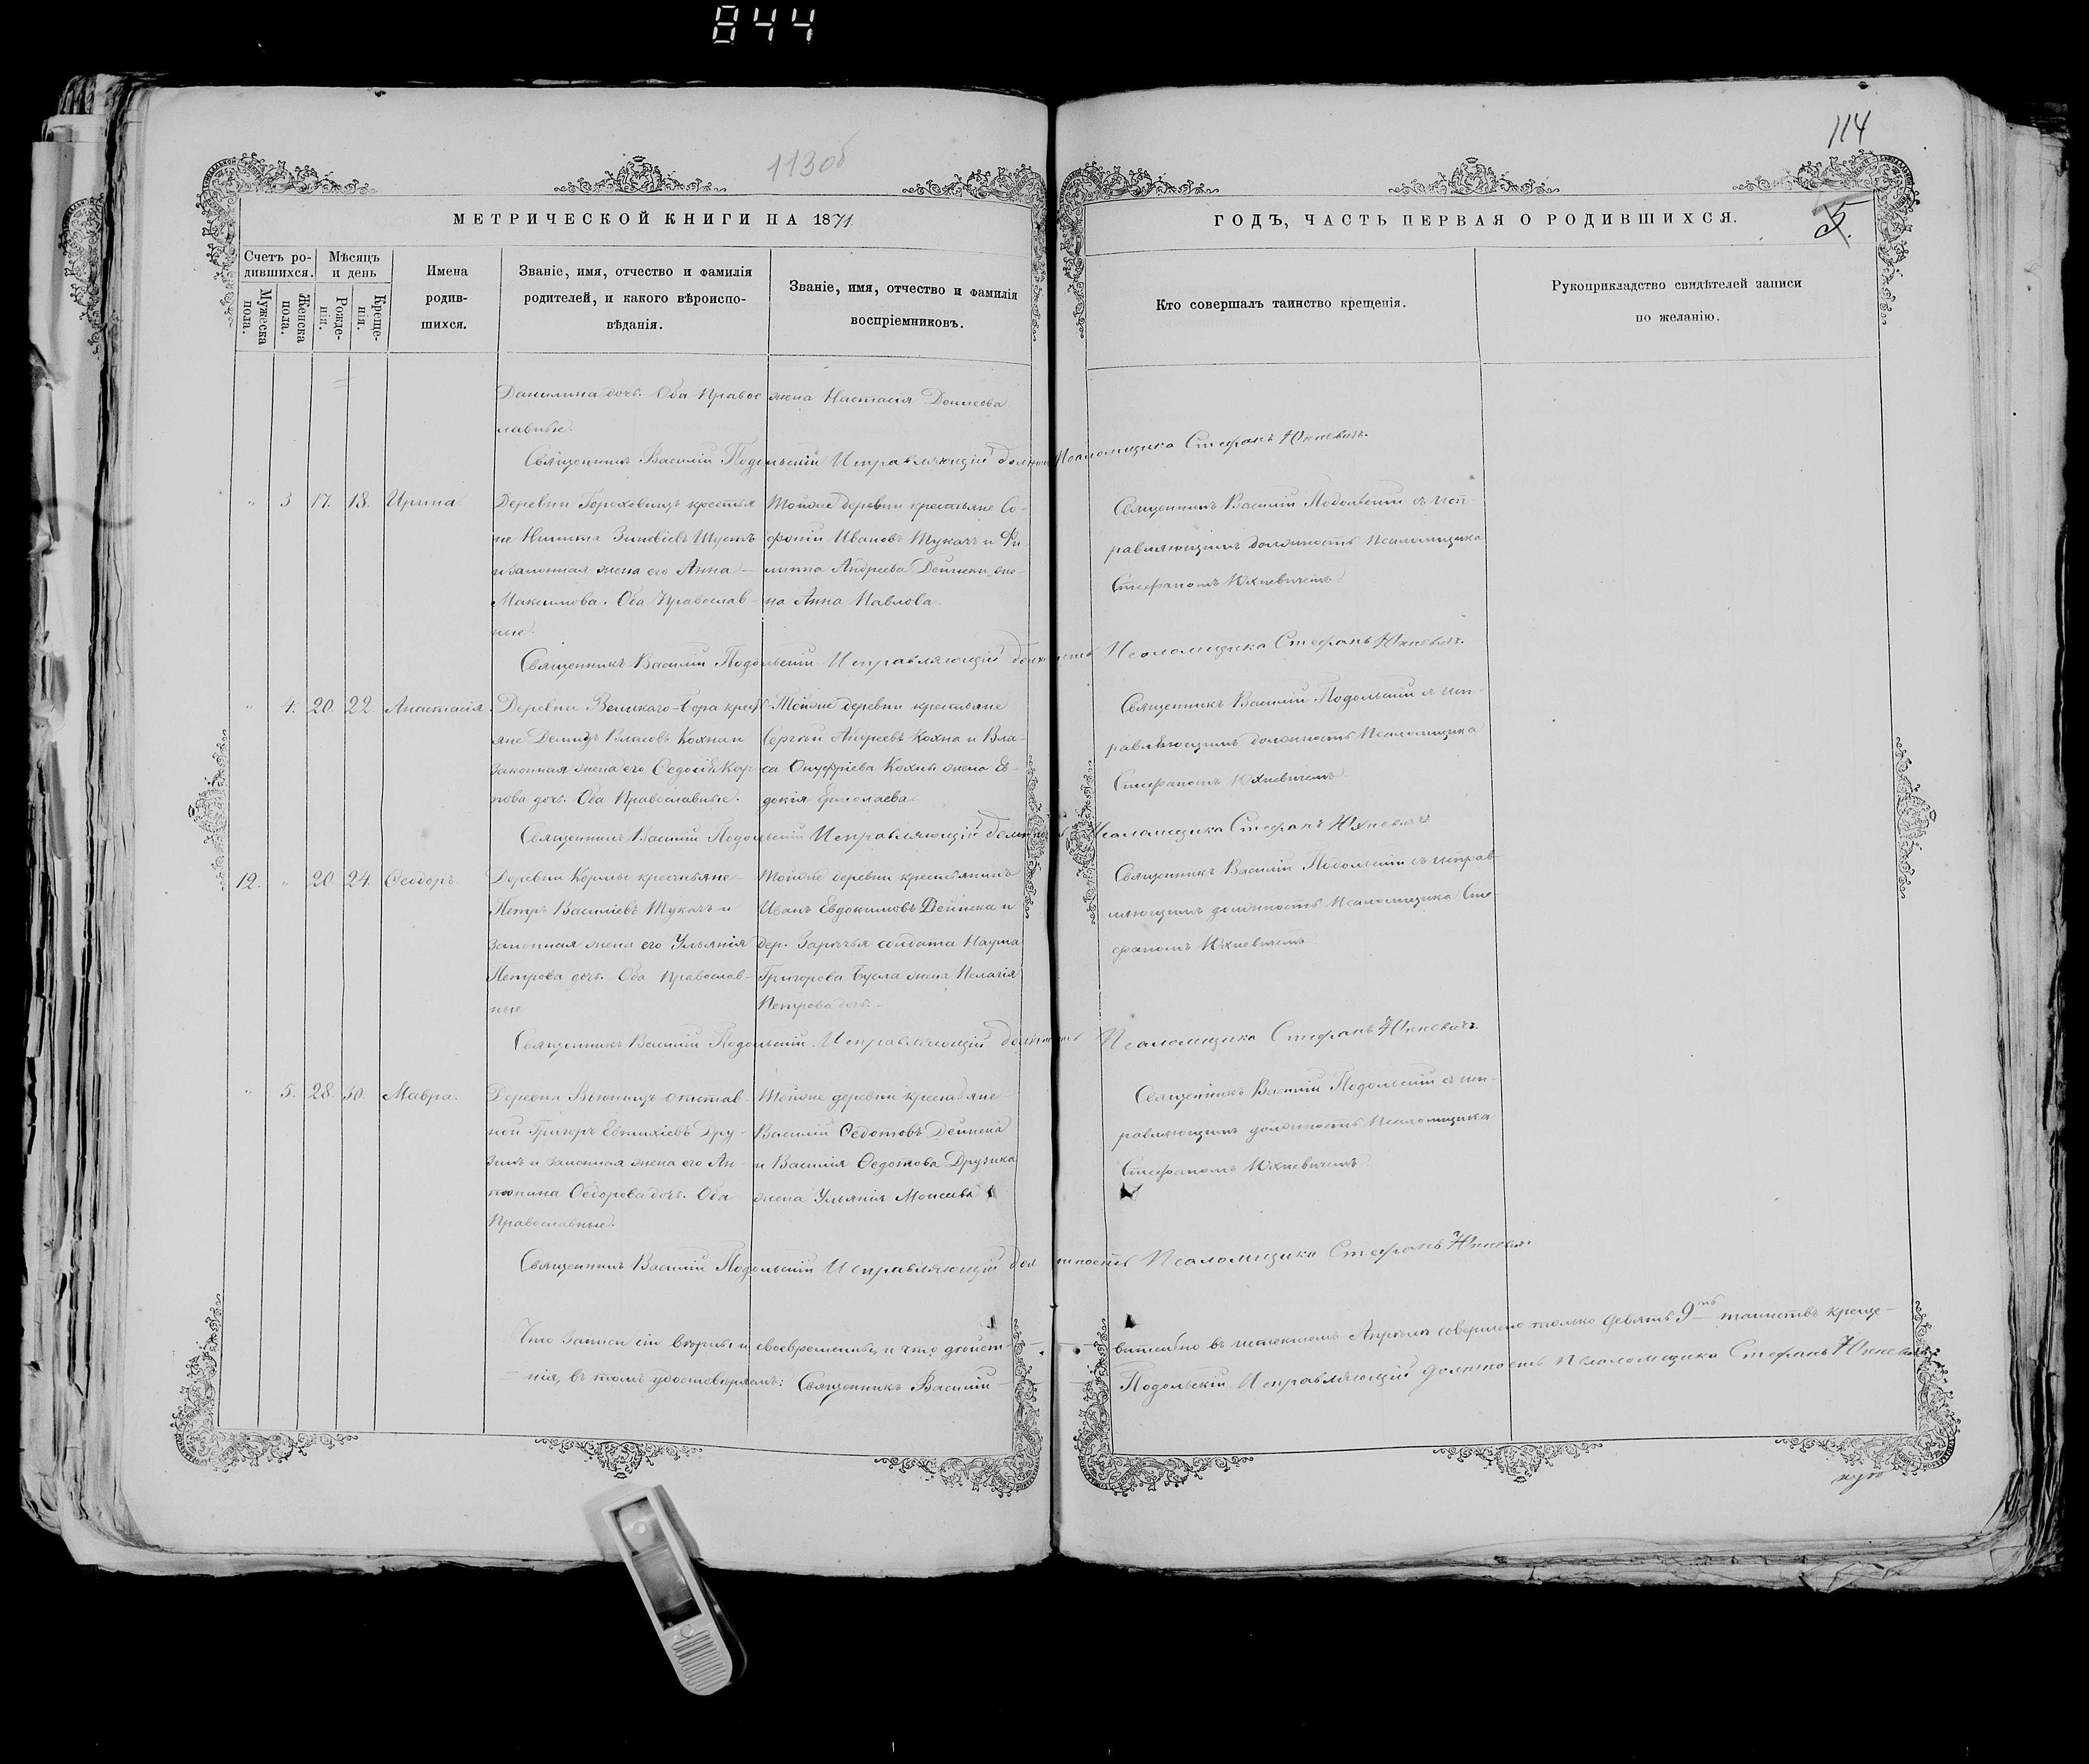 844
113об
114
МЕТРИЧЕСКОЙ КНИГИ НА 1871
ГОДЪ, ЧАСТЬ ПЕРВАЯ О РОДИВШИХСЯ.
5.
Счетъ ро-
дившихся.
Мужеска
пола.
Женска
пола.
Мѣсяцъ
и день
Рожде-
нія.
Креще-
нія.
Имена
родив-
шихся.
Званіе, имя, отчество и фамилія
родителей, и какого вѣроиспо-
вѣданія.
Званіе, имя, отчество и фамилія
воспріемниковъ.
Кто совершалъ таинство крещенія.
Рукоприкладство свидѣтелей записи
по желанію.
Данилина дочь. Оба Правос
лавные.
жена Настасія Денисова
Священникъ Василій Подольскій Исправляющій должность Псаломщика Стефанъ Юхневичъ.
" 3 17. 18. Ирина
Деревни Гороховищъ крестья
не Никита Зиновіевъ Шустъ
и законная жена его Анна –
Максимова. Оба Православ-
ные.
Тойже деревни крестьяне Со-
фоній Ивановъ Тукачъ и Фи-
липпа Андреева Дейнеки же-
на Анна Павлова.
Священникъ Василій Подольскій съ исп-
равляющимъ должность Псаломщика
Стефаномъ Юхневичемъ
Священникъ Василій Подольскій Исправляющій должность Псаломщика Стефанъ Юхневичъ.
" 4. 20. 22. Анастасія.
Деревни Великаго-Бора крест
яне Демидъ Власовъ Кохна и
законная жена его Ѳедосія Кар-
пова дочь. Оба Православные.
Тойже деревни крестьяне
Сергѣй Андреевъ Кохна и Вла-
са Онуфріева Кохны жена Ев-
докія Ермолаева.
Священникъ Василій Подольскій съ исп-
равляющимъ должность Псаломщика
Стефаномъ Юхневичемъ.
Священникъ Василій Подольскій Исправляющій должность Псаломщика Стефанъ Юхневичъ
12. " 20. 24. Ѳеодоръ.
Деревни Кормы крестьяне –
Петръ Василіевъ Тукачъ и
законная жена его Ульянія
Петрова дочь. Оба Православ-
ные
Тойже деревни крестьянинъ
Иванъ Евдокимовъ Дейнека и
дер. Зарѣчья солдата Наума
Григорова Бусла жена Пелагія
Петрова дочь. –
Священникъ Василій Подольскій съ исправ-
ляющимъ должность Псаломщика Сте-
фаномъ Юхневичемъ
Священникъ Василій Подольскій. Исправляющій должность Псаломщика Стефанъ Юхневичъ.
" 5. 28. 30. Мавра.
Деревни Вьюнищъ отстав-
ной Григоръ Евтихіевъ Дру-
зикъ и законная жена его Ан-
Ѳедорова дочь. Оба
Православные.
Тойже деревни крестьяне
Василій Ѳедотовъ Дейнека
и Василія Ѳедотова Друзика
жена Ульянія Моисеева
Священникъ Василій Подольскій съ исп-
равляющимъ должность Псаломщика
Стефаномъ Юхневичемъ
Священникъ Василій Подольскій Исправляющій должность Псаломщика Стефанъ Юхневичъ
Что записи сіи вѣрны и своевременны, и что дѣйст-
вительно въ Апрѣлѣ совершено только девять 9ть таинствъ креще-
нія, въ томъ удостовѣряемъ: Священникъ Василій
Подольскій. Исправляющій должность Псаломщика Стефанъ Юхневичъ.